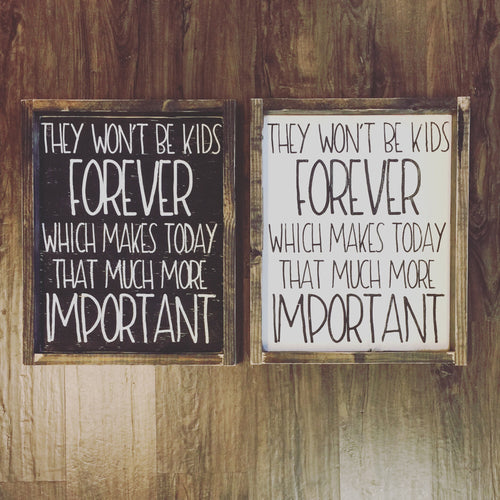 THEY WON'T BE KIDS
FOREVER
WHICH MAKES TODAY
THAT MUCH MORE
IMPORTANT
THEY WON'T BE KIDS
FOREVER
WHICH MAKES TODAY
THAT MUCH MORE
IMPORTANT